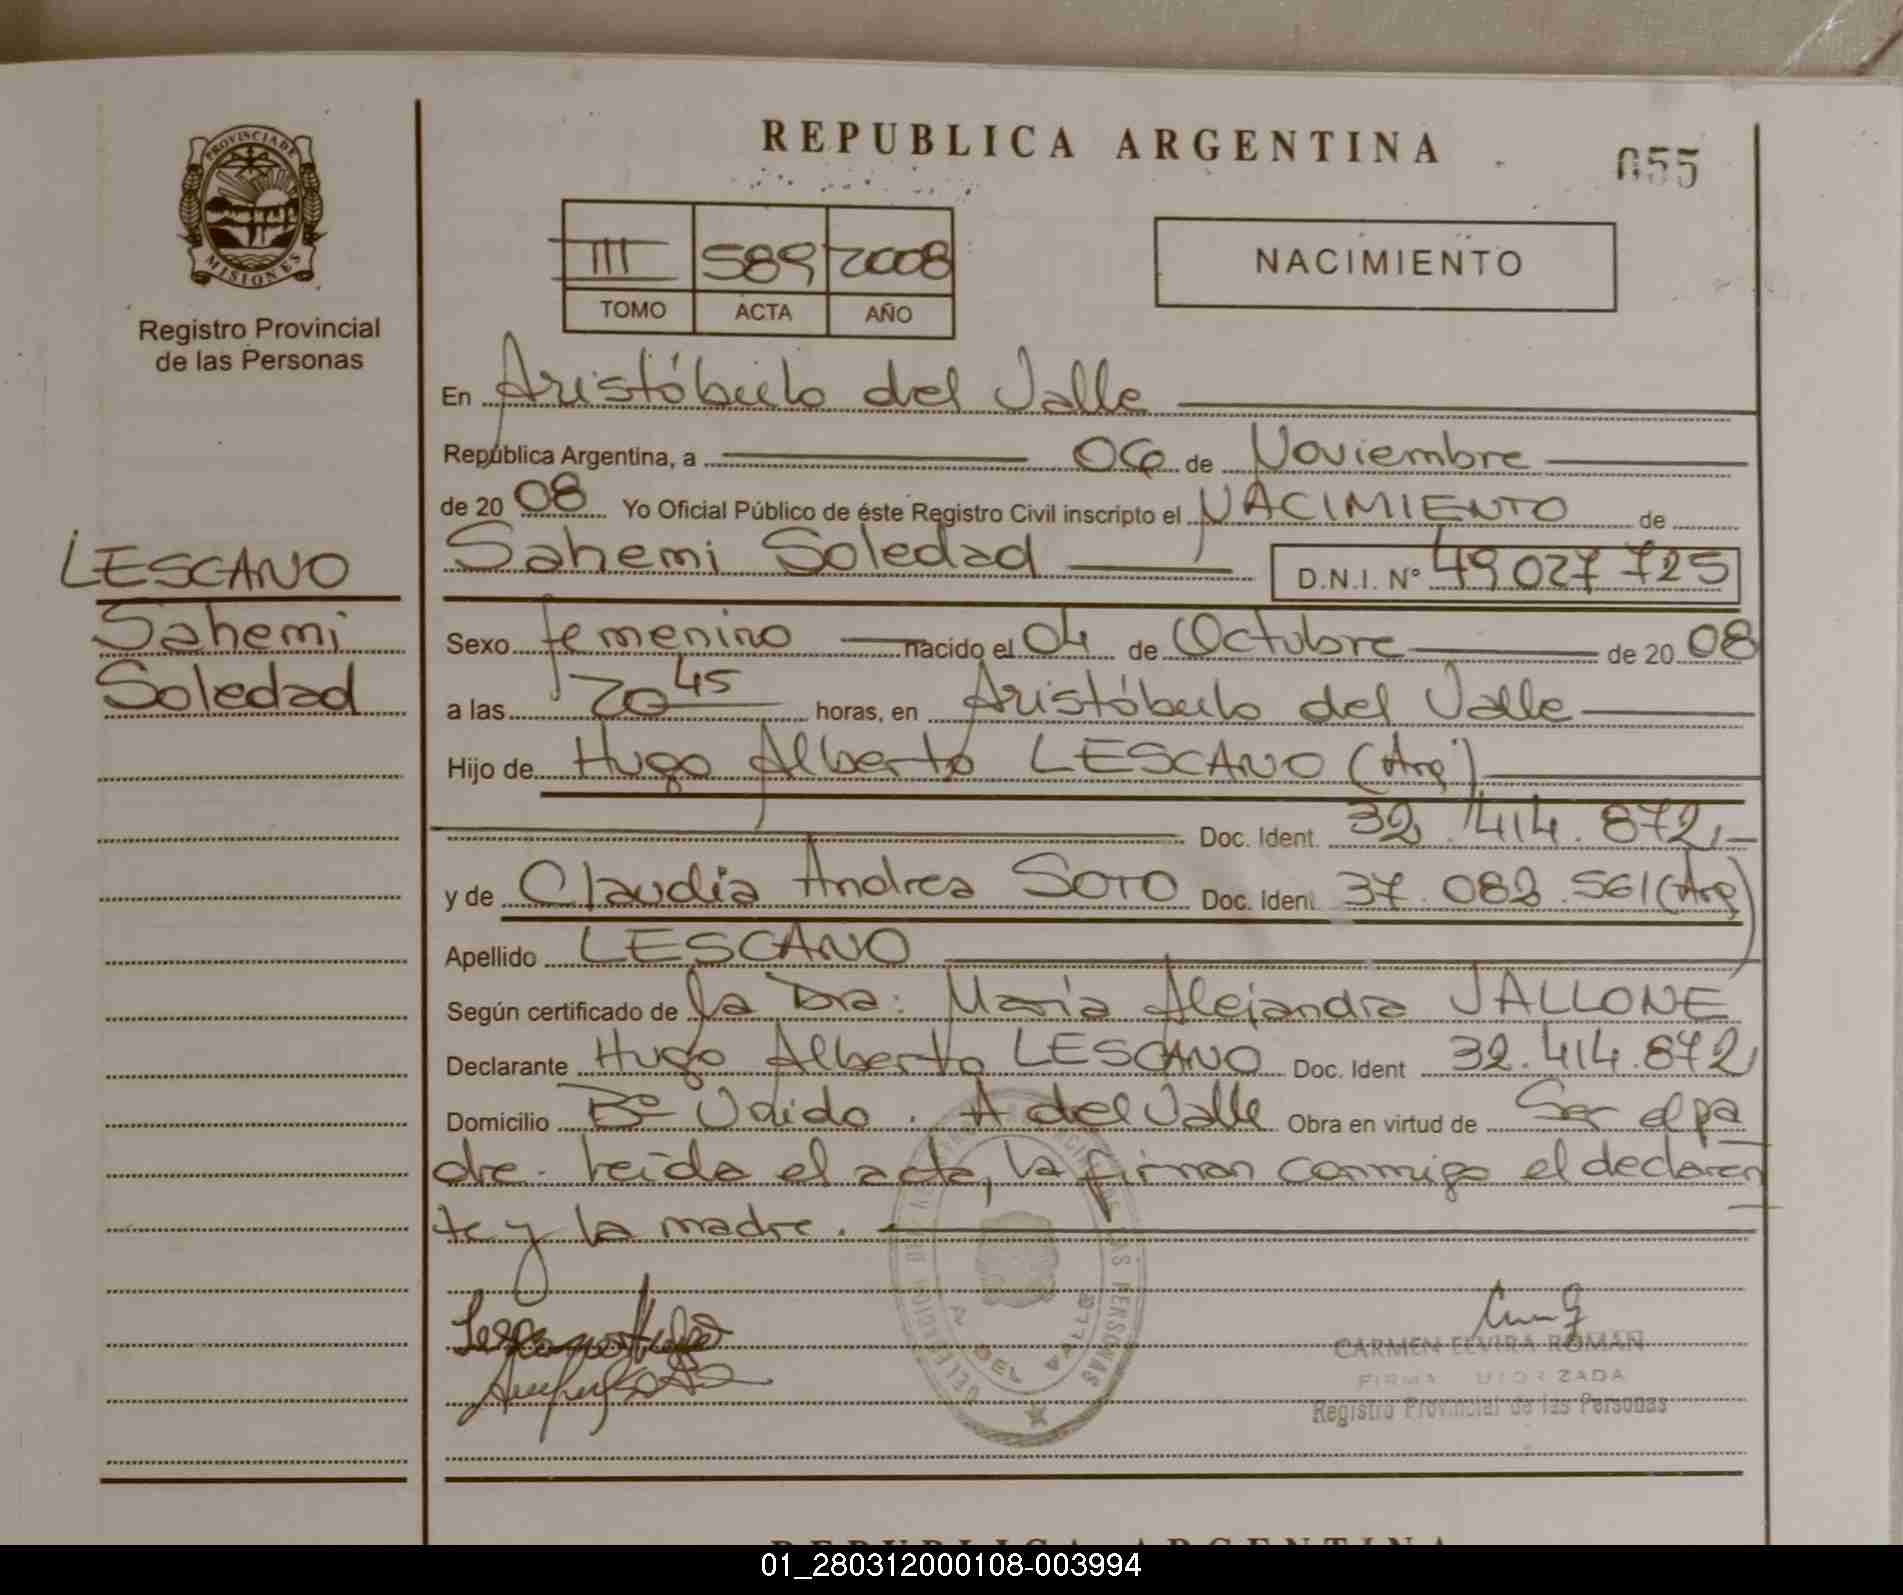 REPUBLICA ARGENTINA
055
PROVINCIA DE MISIONES
Registro Provincial
de las Personas
III 589 2008
TOMO ACTA AÑO
NACIMIENTO
En Aristóbulo del Valle
República Argentina, a 06 de Noviembre
de 2008 Yo Oficial Público de éste Registro Civil inscripto el NACIMIENTO de
Sahemi Soledad D.N.I. Nº 49 027 725
LESCANO
Sahemi
Soledad
Sexo femenino nacido el 04 de Octubre de 2008
a las 20 45 horas, en Aristóbulo del Valle
Hijo de Hugo Alberto LESCANO (Arg)
Doc. Ident. 32.414.872,-
y de Claudia Andrea SOTO Doc. Ident. 37.082.561 (Arg)
Apellido LESCANO
Según certificado de la Dra: María Alejandra JALLONE
Declarante Hugo Alberto LESCANO Doc. Ident 32.414.872
Domicilio Bº Unido. A del Valle Obra en virtud de Ser el pa
dre. Leida el acta, la firman conmigo el declaran
te y la madre.
A. DEL VALLE
CARMEN ELVIRA ROMAN
FIRMA AUTORIZADA
Registro Provincial de las Personas
REPUBLICA ARGENTINA
01_280312000108-003994